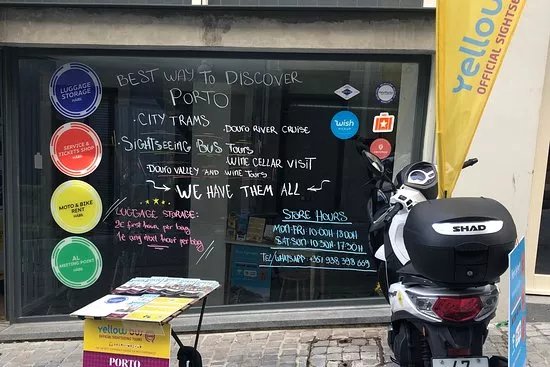 BEST WAY TO DISCOVER
PORTO
• CITY TRAMS
• DOURO RIVER CRUISE
• SIGHTSEEING BUS TOURS
WINE CELLAR VISIT
DOURO VALLEY AND WINE TOURS
WE HAVE THEM ALL
LUGGAGE STORAGE:
2€ first hour per bag
1€ any next hour per bag
STORE HOURS
MON-FRI: 10:00H-18:00H
SAT-SUN: 10:30H-17:30H
TEL/WHATSAPP:
LUGGAGE
STORAGE
SERVICE &
TICKETS SHOP
MOTO & BIKE
RENT
AL
MEETING POINT
wish
yellow
OFFICIAL SIGHTSEEING
SHAD
yellow
OFFICIAL SIGHTSEEING TOURS
PORTO